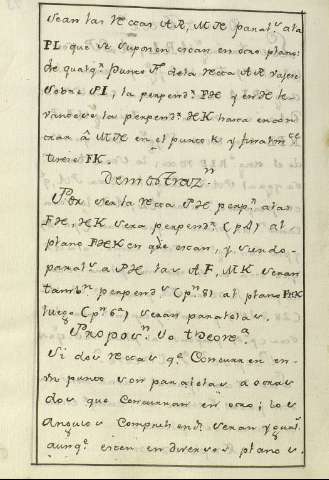 Sean las rectas AR, MK paral.s a la
PI que se suponen estan en otro plano:
de qualq.r punto F de la recta AR vajese
sobre PI, la perpend.r FH y en H le
vantese la perpend.r HK hasta encon
trar â MK en el punto K y finalm.te
tirese FK.
Demostraz.n
Por ser la recta PH perp.r a las
FH, HK sera perpend.r (p 4) al
plano FHK en que estan, y siendo
paral.s a PH las AF, MK seran
tamb.n perpend.s (p.n 8) al plano FHK
luego (p.n 6.a) seran paralelas.
Propos.n 10 theore.a
Si dos rectas q.e concurren en
un punto son paralelas a otras
dos que concurran en otro; los
angulos comprehend.s seran ygual.s
aunq.e esten en diversos planos.